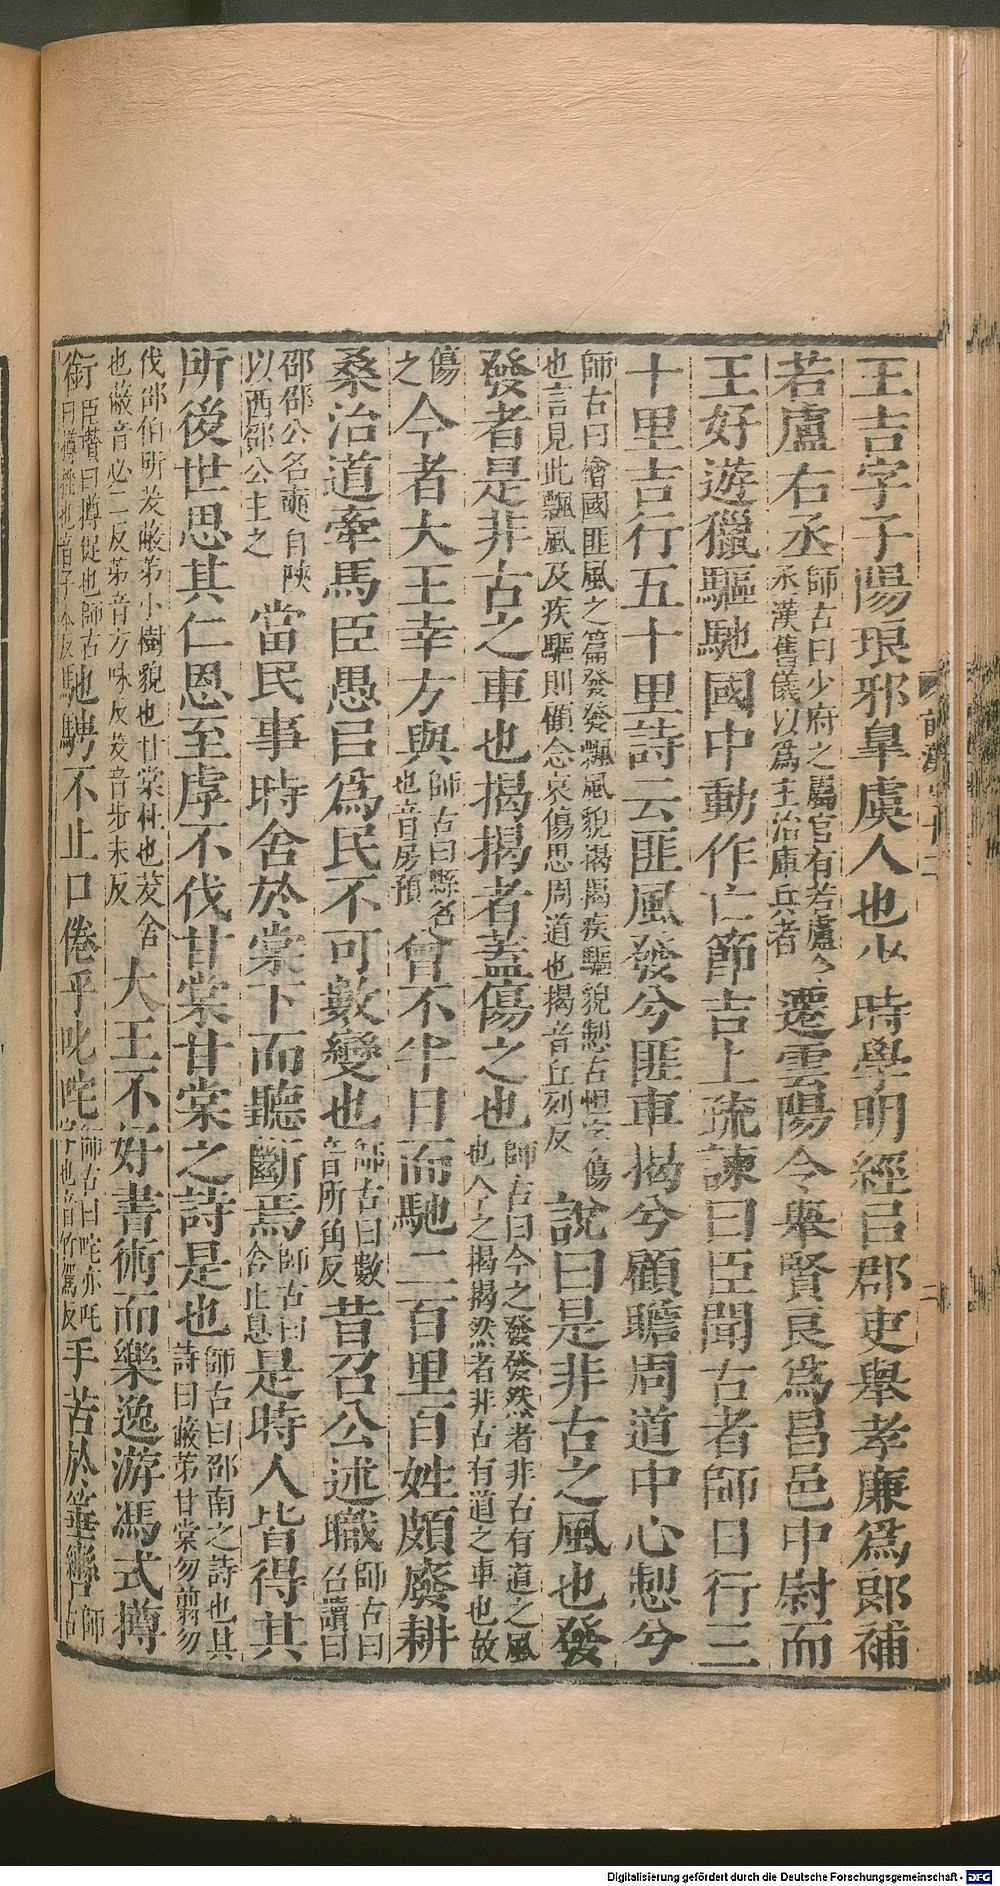 王吉字子陽琅邪臯虞人也少時學明經㠯郡吏舉孝廉爲郎補
若盧右丞師古曰少府之屬官有若盧令丞漢舊儀以爲主治庫兵者遷雲陽令舉賢良爲昌邑中尉而
王好遊獵驅馳國中動作亡節吉上疏諫曰臣聞古者師日行三
十里吉行五十里詩云匪風發兮匪車揭兮顧瞻周道中心㔼兮
師古曰檜國匪風之篇發發飄風貌揭揭疾驅貌㔼古怛字傷也言見此飄風及疾驅則顧念哀傷思周道也揭音丘列反說曰是非古之風也發
發者是非古之車也揭揭者蓋傷之也師古曰今之發發然者非古有道之風也今之揭揭然者非古有道之車也故
傷之今者大王幸方與師古曰縣名也音房預曾不半日而馳二百里百姓頗廢耕
桑治道牽馬臣愚㠯爲民不可數變也師古曰數音所角反昔召公述職師古曰召讀曰
邵邵公名奭自陝以西邵公主之當民事時舍於棠下而聽斷焉師古曰舍止息是時人皆得其
所後世思其仁恩至虖不伐甘棠甘棠之詩是也師古曰邵南之詩也其詩曰蔽芾甘棠勿翦勿
伐邵伯所茇蔽芾小樹貌也甘棠杜也茇舍也蔽音必二反芾音方味反茇音步末反大王不好書術而樂逸游馮式撙
銜臣瓚曰撙促也師古曰撙挫也音子本反馳騁不止口倦乎叱咤師古曰咤亦吒字也音竹駕反手苦於箠轡師古
前漢 七十二
二
Digitalisierung gefördert durch die Deutsche Forschungsgemeinschaft - DFG